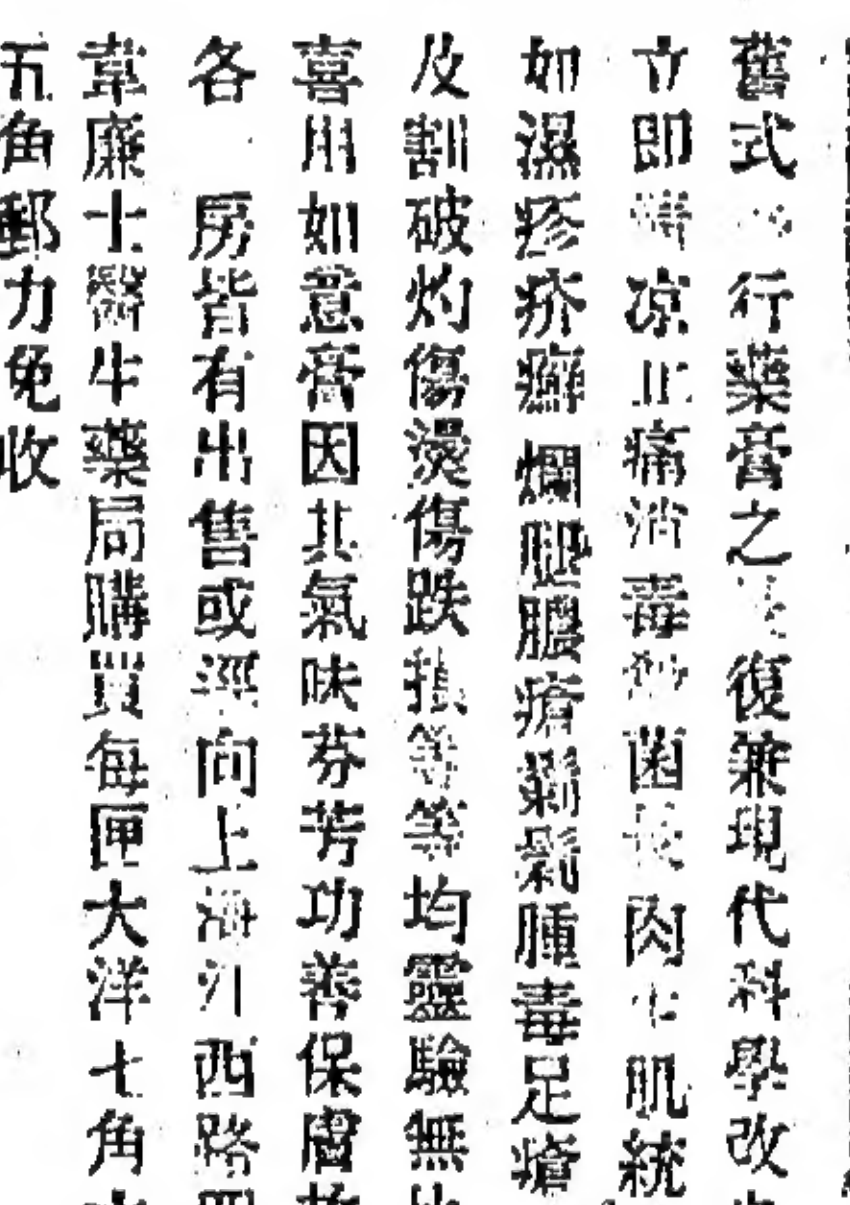 舊式行藥膏之復兼現代科學改
立即清凉止痛消毒殺菌長肉生肌統
如濕疹疥癬爛腿膿瘡鬎鬁腫毒足瘡
及割破灼傷燙傷跌損等等均靈驗無
喜用如意膏因其氣味芬芳功善保膚
各房皆有出售或逕向上海江西路四
韋廉士醫生藥局購買每匣大洋七角
五角郵力免收